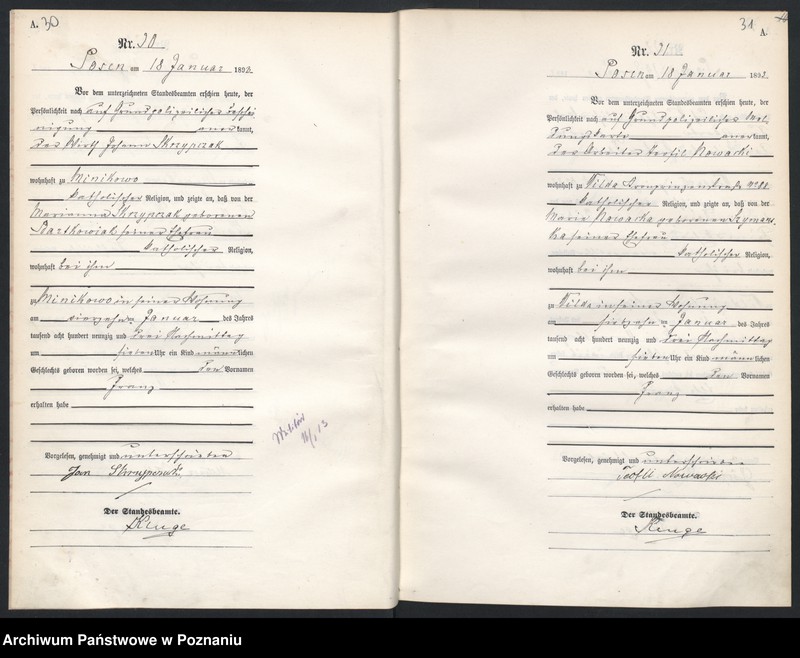 A. 30
Nr. 30
Posen am 18 Januar 1893.
Vor dem unterzeichneten Standesbeamten erschien heute, der
Persönlichkeit nach auf Grund polizeilicher Beschei
nigung anerkannt,
der Wirth Johann Skrzypczak
wohnhaft zu Minikowo
katholischer Religion, und zeigte an, daß von der
Marianna Skrzypczak geborenen
Bartkowiak seiner Ehefrau
katholischer Religion,
wohnhaft bei ihm
zu Minikowo in seiner Wohnung
am vierzehnten Januar des Jahres
tausend acht hundert neunzig und drei Nachmittag
um sieben Uhr ein Kind männlichen
Geschlechts geboren worden sei, welches den Vornamen
Franz
erhalten habe
Vorgelesen, genehmigt und unterschrieben
Jan Skrzypczak
Der Standesbeamte.
31
A.
Nr. 31
Posen am 18 Januar 1893.
Vor dem unterzeichneten Standesbeamten erschien heute, der
Persönlichkeit nach auf Grund polizeilicher Mel
dungskarte anerkannt,
der Arbeiter Teofil Nowacki
wohnhaft zu Wilda Kronprinzenstraße
katholischer Religion, und zeigte an, daß von der
Marie Nowacka geborenen Szymans
ka seiner Ehefrau
katholischer Religion,
wohnhaft bei ihm
zu Wilda in seiner Wohnung
am Januar des Jahres
tausend acht hundert neunzig und drei Nachmittag
um sieben Uhr ein Kind männlichen
Geschlechts geboren worden sei, welches den Vornamen
Franz
erhalten habe
Vorgelesen, genehmigt und unterschrieben
Teofil Nowacki
Der Standesbeamte.
Archiwum Państwowe w Poznaniu